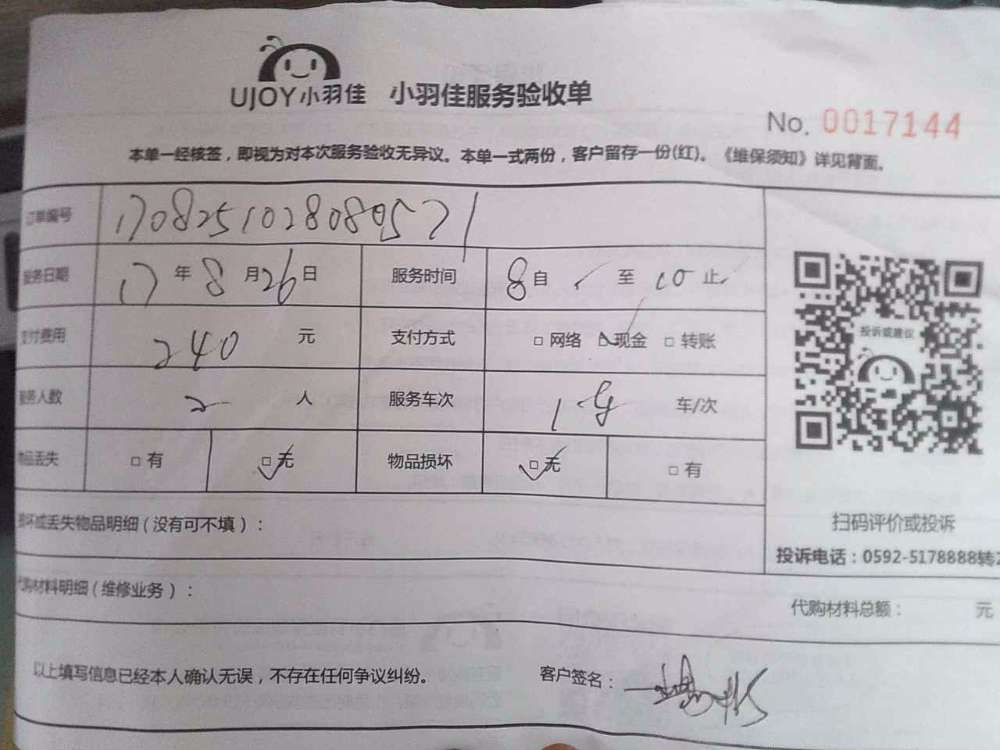 UJOY小羽佳 小羽佳服务验收单
No. 0017144
本单一经核签，即视为对本次服务验收无异议。本单一式两份，客户留存一份(红)。《维保须知》详见背面。
订单编号 170825102808057 1
服务日期 17 年 8 月 26 日 服务时间 8 自 至 10 止
支付费用 240 元 支付方式 □ 网络 □ 现金 □ 转账
服务人数 2 人 服务车次 1 车/次
物品丢失 □ 有 □ 无 物品损坏 □ 无 □ 有
投诉或建议
扫码评价或投诉
投诉电话：0592-5178888转2
损坏或丢失物品明细 ( 没有可不填 )：
代购材料明细 ( 维修业务 )：
代购材料总额： 元
以上填写信息已经本人确认无误，不存在任何争议纠纷。 客户签名：